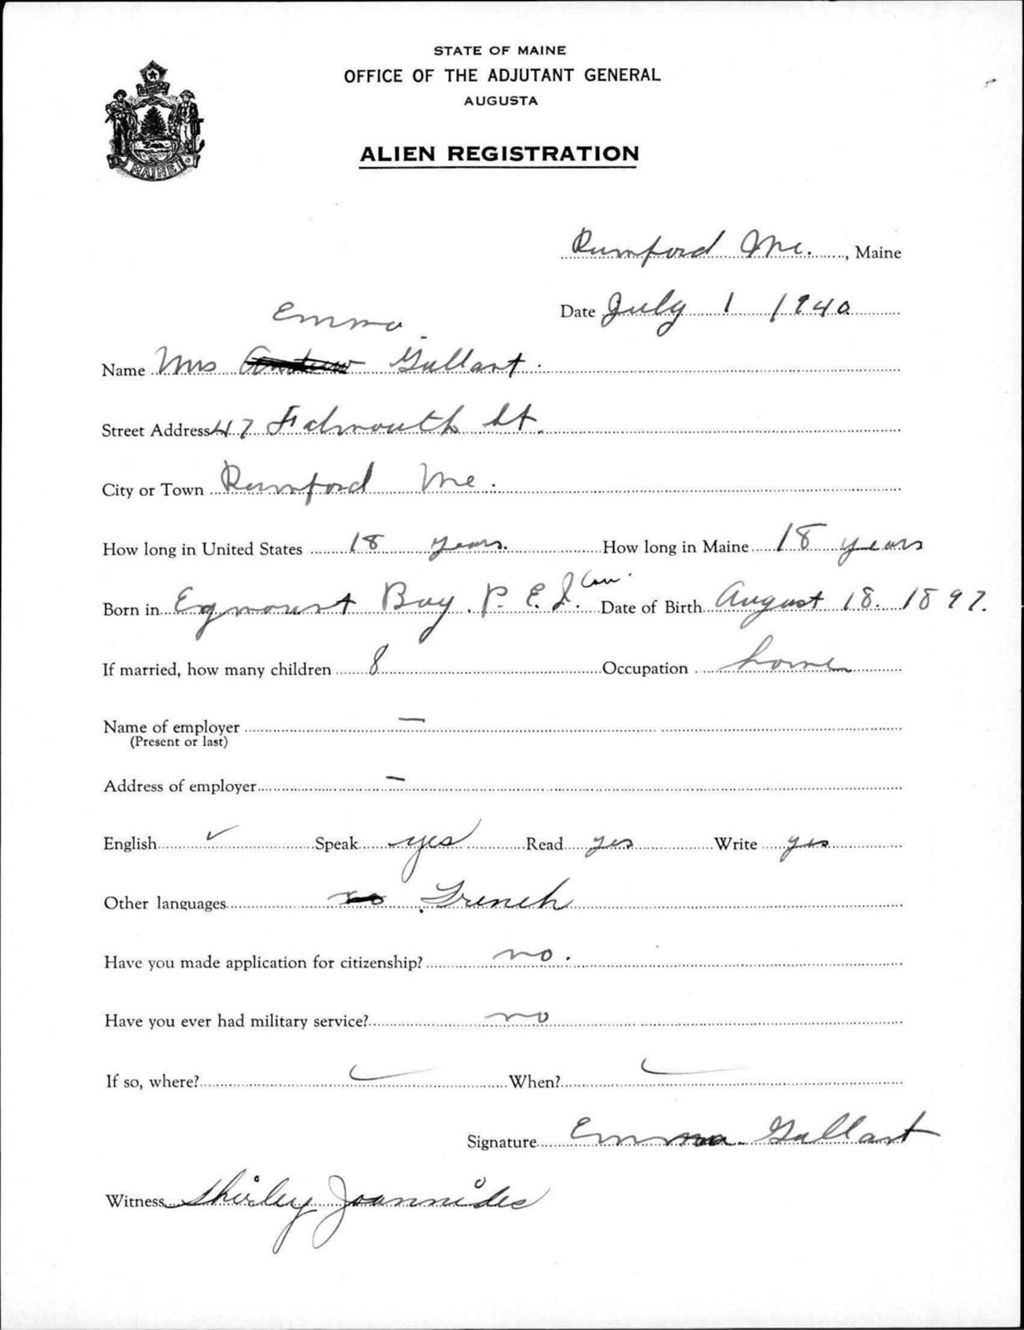 STATE OF MAINE
OFFICE OF THE ADJUTANT GENERAL
AUGUSTA
ALIEN REGISTRATION
MAINE
Rumford Me. , Maine
Date July 1 1940
Emma
Name Mrs Gallant.
Street Address 47 Falmouth St.
City or Town Rumford Me.
How long in United States 18 years. How long in Maine 18 years
Born in Egmount Bay. P. E. I. Can. Date of Birth August 18. 1897.
If married, how many children 8 Occupation home
Name of employer —
(Present or last)
Address of employer —
English ✓ Speak yes Read yes Write yes
Other languages no French
Have you made application for citizenship? no.
Have you ever had military service? no
If so, where? ✓ When? ✓
Signature Emma Gallant
Witness Shirley Joannides